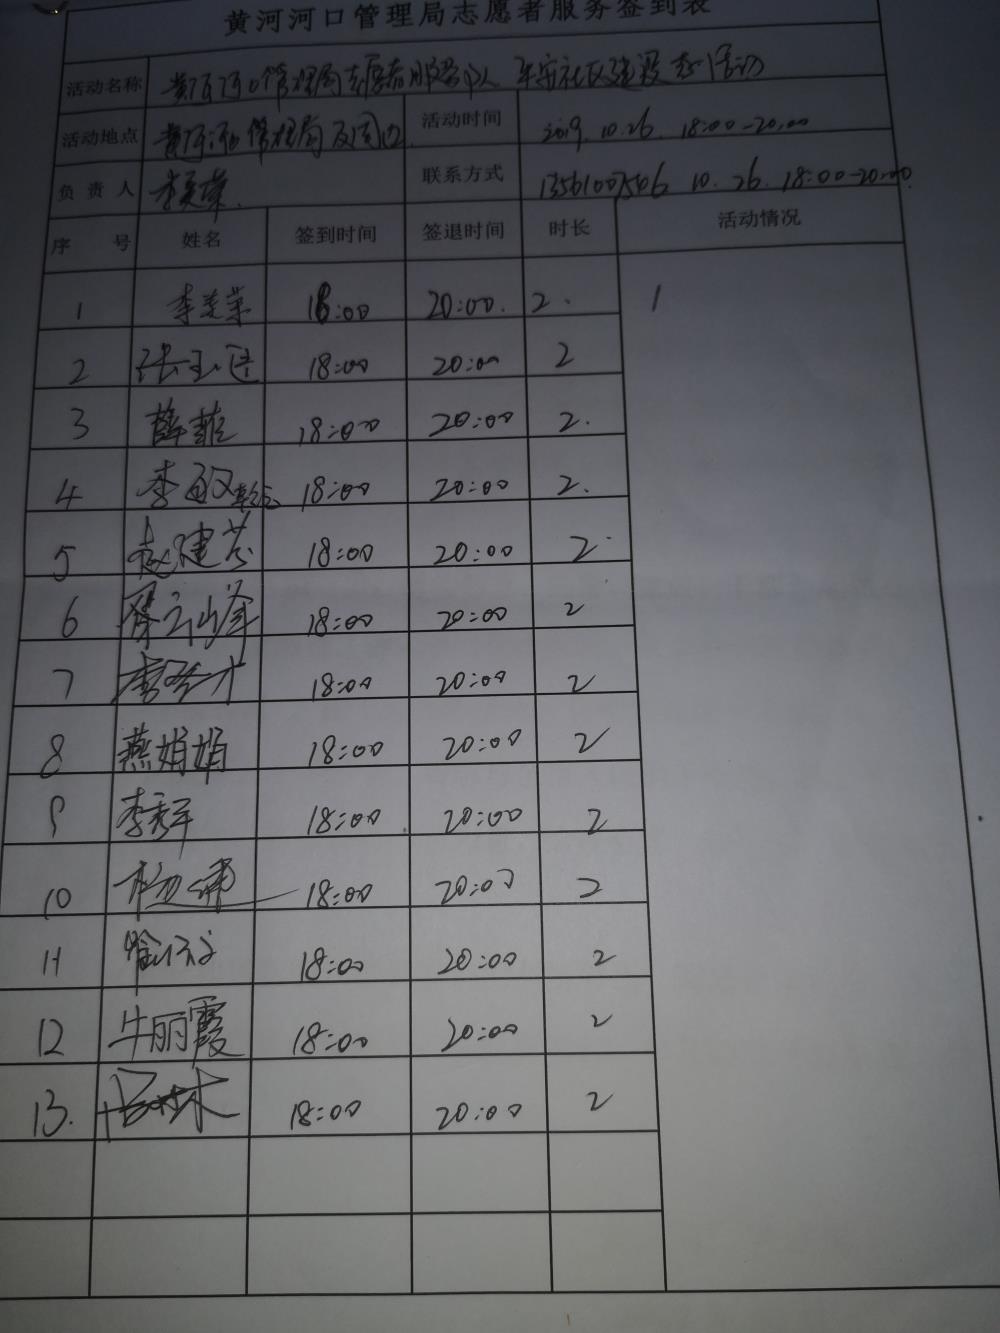 黄河河口管理局志愿者服务签到表
活动名称 黄河河口管理局志愿者服务队 平安社区建设志愿活动
活动地点 黄河河口管理局及周边 活动时间 2019.10.26. 18:00-20:00
负责人 李美荣 联系方式 13561007546 10.26. 18:00-20:00
序号 姓名 签到时间 签退时间 时长 活动情况
1 李美荣 18:00 20:00. 2. 1
2 18:00 20:00 2
3 薛菲 18:00 20:00 2.
4 李敏 18:00 20:00 2.
5 赵建芬 18:00 20:00 2
6 18:00 20:00 2
7 18:00 20:00 2
8 燕娟娟 18:00 20:00 2
9 李秀军 18:00 20:00 2
10 18:00 20:00 2
11 18:00 20:00 2
12 牛丽霞 18:00 20:00 2
13. 18:00 20:00 2